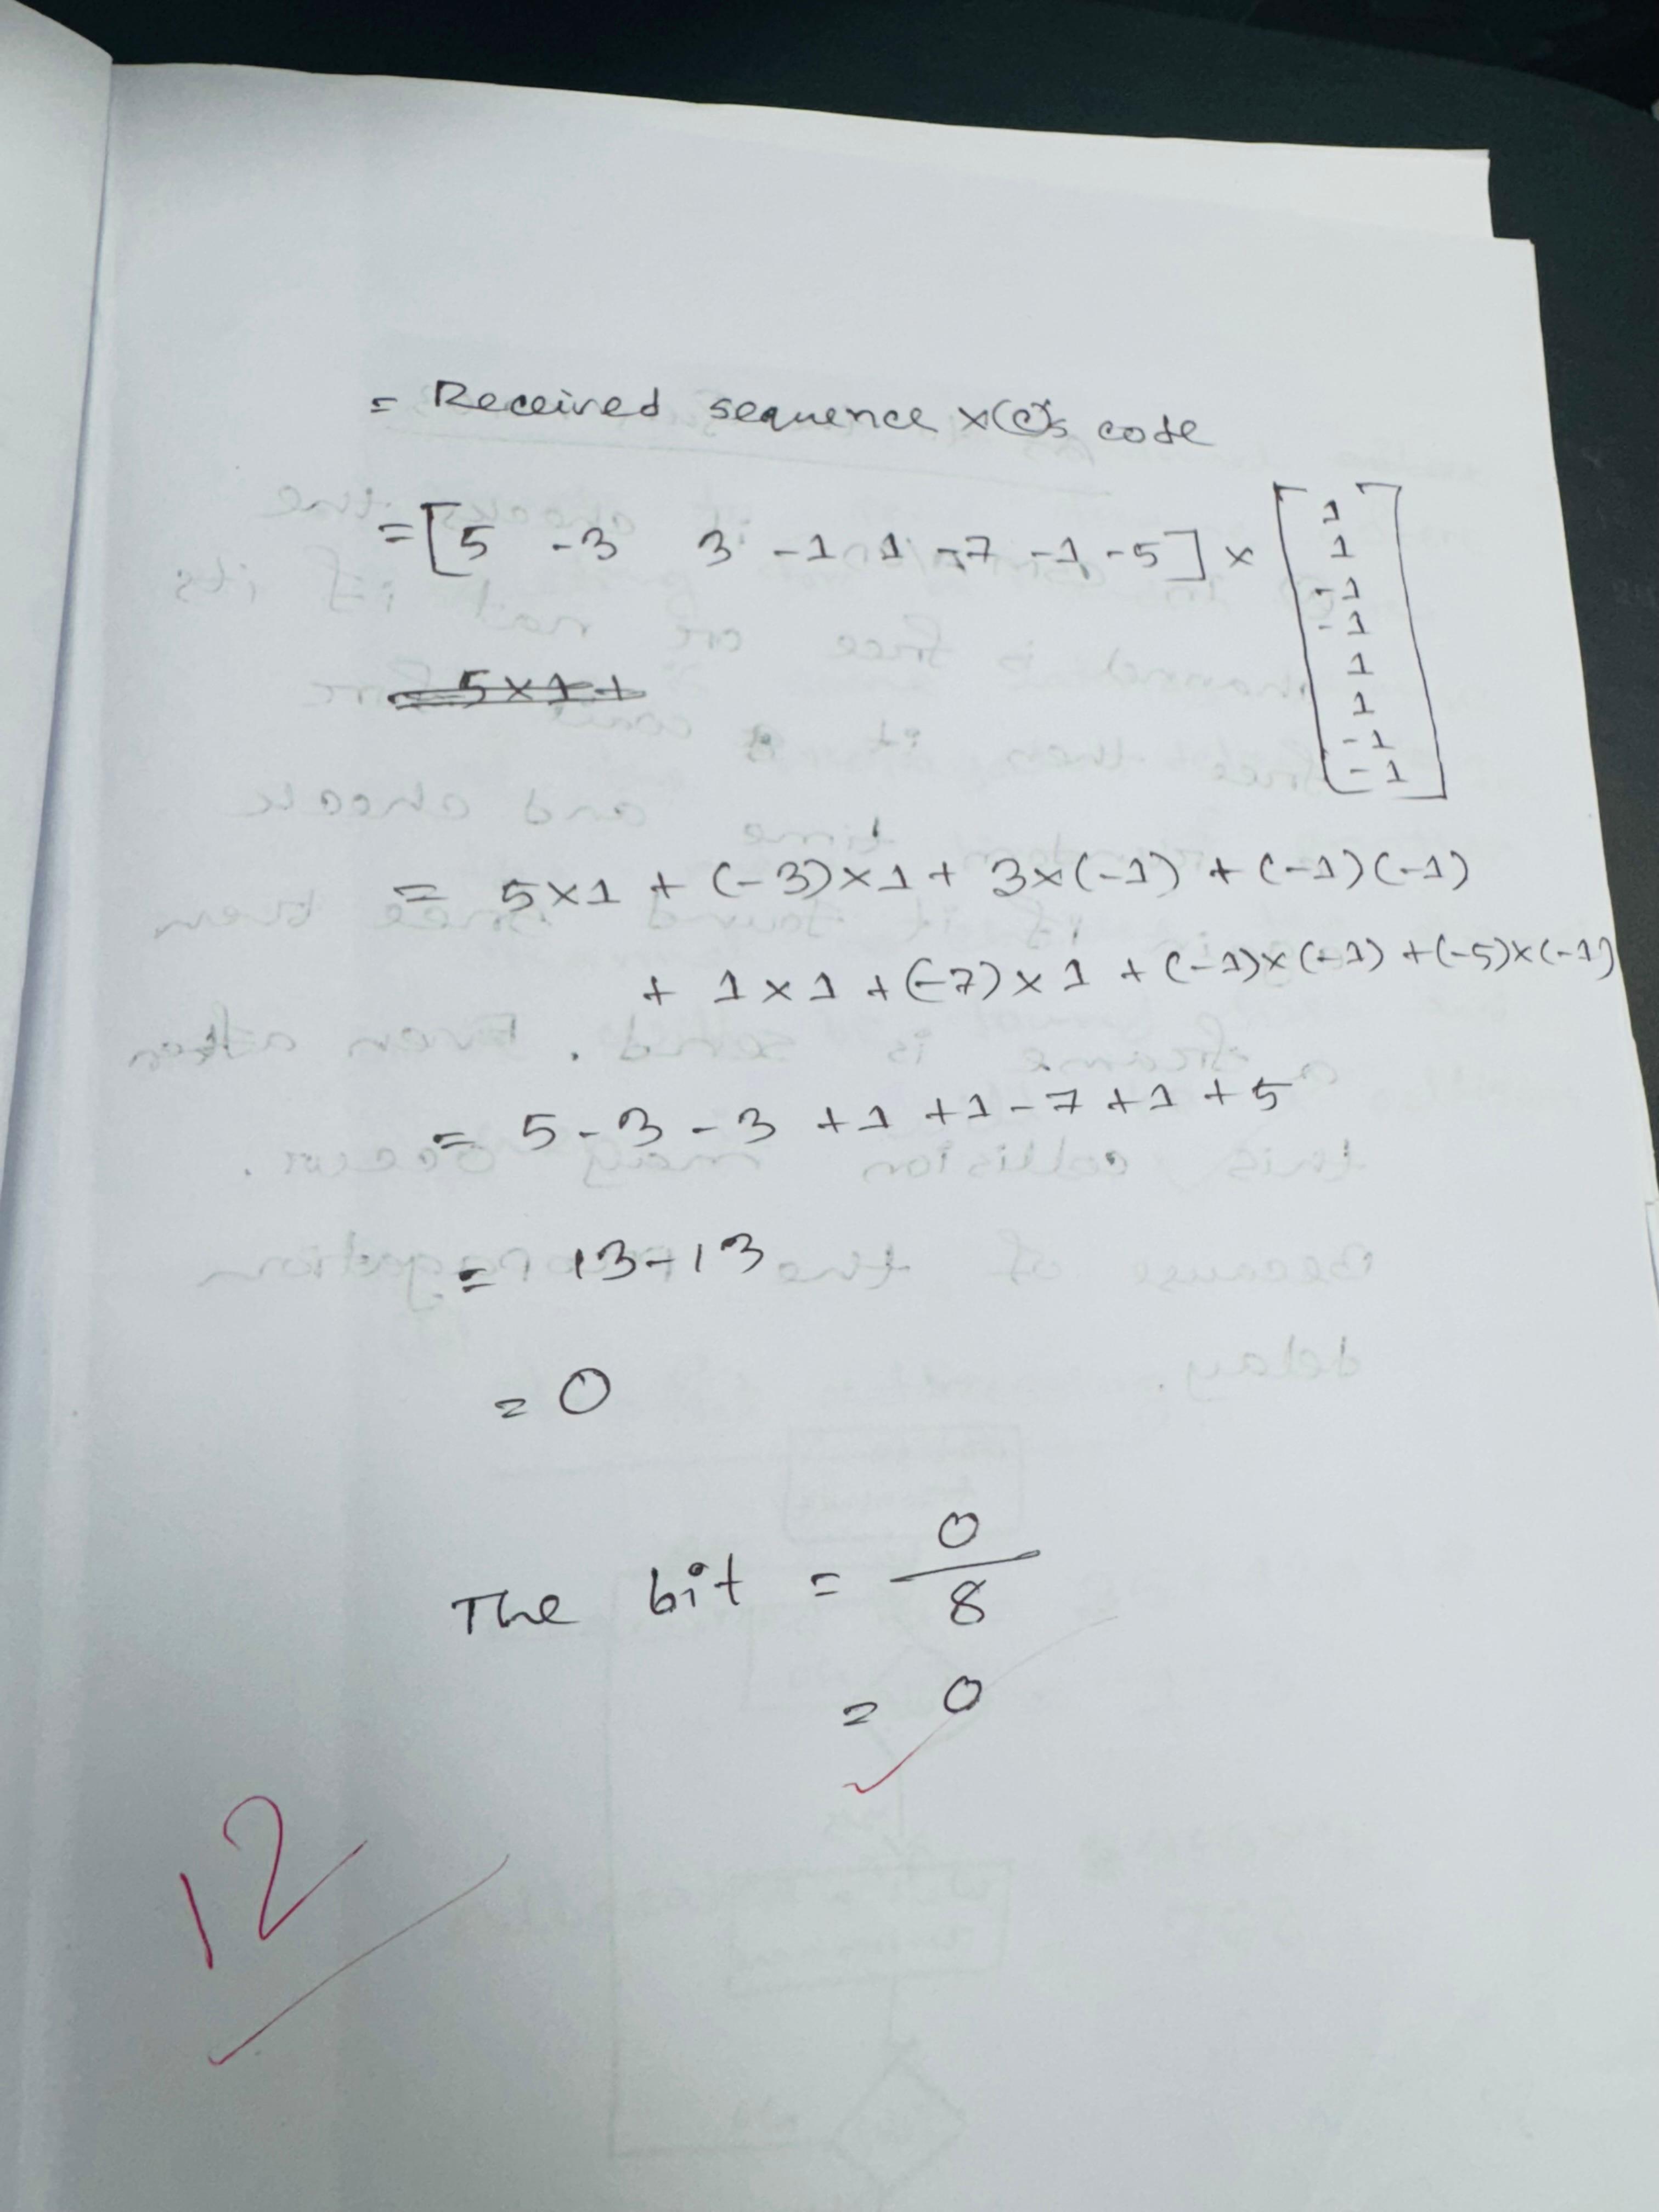 = Received sequence × C's code
= [5 -3 3 -1 1 -7 -1 -5] ×
1
1
-1
-1
1
1
-1
-1
5×1+
= 5×1 + (-3)×1 + 3×(-1) + (-1)(-1)
+ 1×1 + (-7)×1 + (-1)×(-1) + (-5)×(-1)
= 5-3-3+1+1-7+1+5
= 13-13
= 0
The bit = 0
8
= 0
12